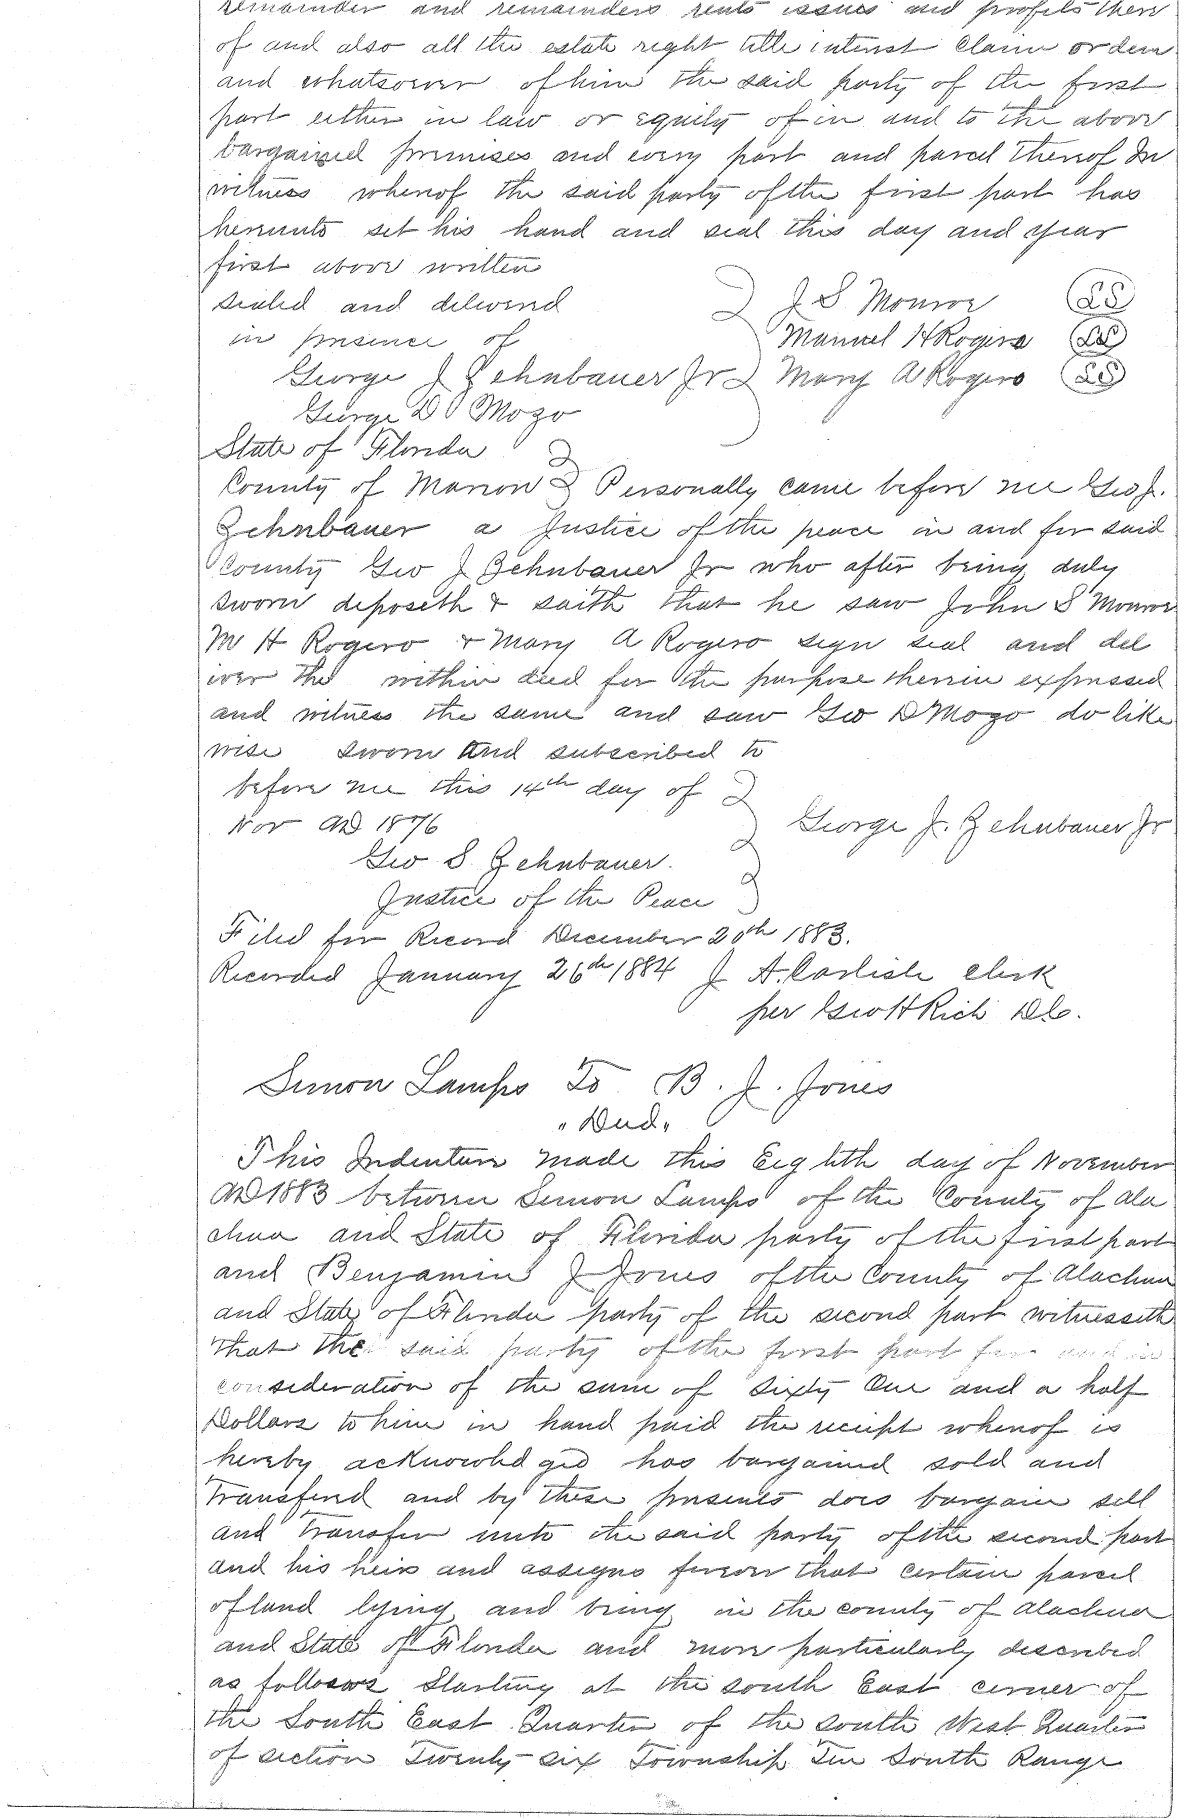 remainder and remainders rents issues and profits there
of and also all the estate right title interest claim or dem
and whatsoever of him the said party of the first
part either in law or equity of in and to the above
bargained premises and every part and parcel thereof In
witness whereof the said party of the first part has
hereunto set his hand and seal this day and year
first above written
sealed and delivered J S Monroe LS
in presence of Manuel H Rogero LS
George J Zehnbauer Jr Mary A Rogero LS
George D Mozo
State of Florida
County of Marion Personally came before me Geo J.
Zehnbauer a Justice of the peace in and for said
County Geo J Zehnbauer Jr who after being duly
sworn deposeth & saith that he saw John S Monroe
M H Rogero & Mary A Rogero sign seal and del
iver the within deed for the purpose therein expressed
and witness the same and saw Geo D Mozo do like
wise sworn and subscribed to
before me this 14th day of
Nov AD 1876 George J. Zehnbauer Jr
Geo S. Zehnbauer.
Justice of the Peace
Filed for Record December 20th 1883.
Recorded January 26th 1884 J A. Carlisle Clerk
per Geo H Rich D.C.
Simon Lamps To B. J. Jones
"Deed"
This Indenture made this Eighth day of November
AD 1883 between Simon Lamps of the County of Ala
chua and State of Florida party of the first part
and Benjamin J Jones of the County of Alachua
and State of Florida party of the second part witnesseth
that the said party of the first part for and in
consideration of the sum of sixty One and a half
Dollars to him in hand paid the receipt whereof is
hereby acknowledged has bargained sold and
Transferred and by these presents does bargain sell
and Transfer unto the said party of the second part
and his heirs and assigns forever that certain parcel
of land lying and being in the county of Alachua
and State of Florida and more particularly described
as follows Starting at the south East corner of
the South East Quarter of the south West Quarter
of section Twenty-six Township Ten South Range